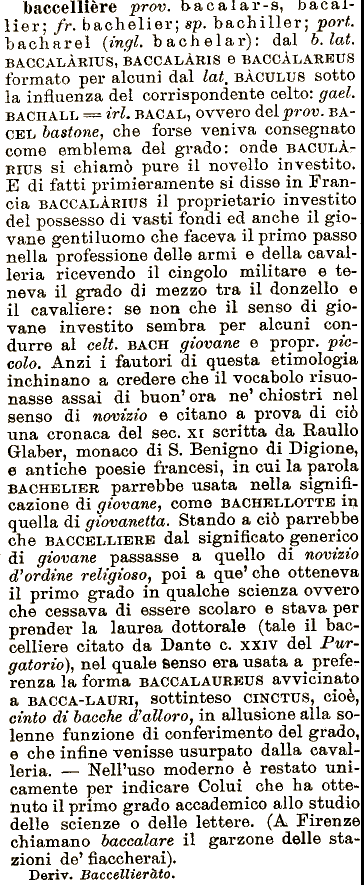 baccellière prov. bacalar-s, bacal-
lier; fr. bachelier; sp. bachiller; port.
bacharel (ingl. bachelar): dal b. lat.
BACCALÀRIUS, BACCALÀRIS e BACCÀLAREUS
formato per alcuni dal lat. BÀCULUS sotto
la influenza del corrispondente celto: gael.
BACHALL = irl. BACAL, ovvero del prov. BA-
CEL bastone, che forse veniva consegnato
come emblema del grado: onde BACULÀ-
RIUS si chiamò pure il novello investito.
E di fatti primieramente si disse in Fran-
cia BACCALÀRIUS il proprietario investito
del possesso di vasti fondi ed anche il gio-
vane gentiluomo che faceva il primo passo
nella professione delle armi e della caval-
leria ricevendo il cingolo militare e te-
neva il grado di mezzo tra il donzello e
il cavaliere: se non che il senso di gio-
vane investito sembra per alcuni con-
durre al celt. BACH giovane e propr. pic-
colo. Anzi i fautori di questa etimologia
inchinano a credere che il vocabolo risuo-
nasse assai di buon' ora ne' chiostri nel
senso di novizio e citano a prova di ciò
una cronaca del sec. XI scritta da Raullo
Glaber, monaco di S. Benigno di Digione,
e antiche poesie francesi, in cui la parola
BACHELIER parrebbe usata nella signifi-
cazione di giovane, come BACHELLOTTE in
quella di giovanetta. Stando a ciò parrebbe
che BACCELLIERE dal significato generico
di giovane passasse a quello di novizio
d'ordine religioso, poi a que' che otteneva
il primo grado in qualche scienza ovvero
che cessava di essere scolaro e stava per
prender la laurea dottorale (tale il bac-
celliere citato da Dante c. XXIV del Pur-
gatorio), nel quale senso era usata a prefe-
renza la forma BACCALAUREUS avvicinato
a BACCA-LAURI, sottinteso CINCTUS, cioè,
cinto di bacche d'alloro, in allusione alla so-
lenne funzione di conferimento del grado,
e che infine venisse usurpato dalla caval-
leria. — Nell'uso moderno è restato uni-
camente per indicare Colui che ha otte-
nuto il primo grado accademico allo studio
delle scienze o delle lettere. (A Firenze
chiamano baccalare il garzone delle sta-
zioni de' fiaccherai).
Deriv. Baccellieràto.